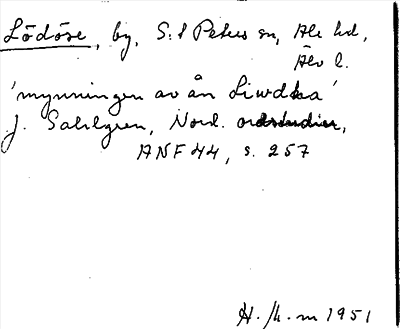 Lödöse, by, S:t Peters sn, Ale hd,
Älv l.
'mynningen av ån Liwdha'
J. Sahlgren, Nord. ordstudier,
ANF 44, s. 257
H. /k. m 1951